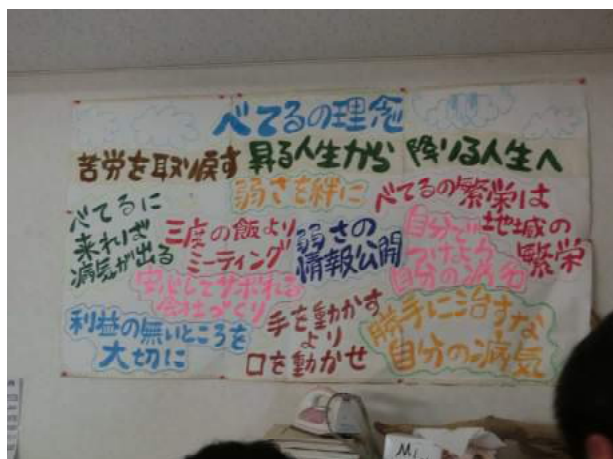 べてるの理念
苦労を取り戻す
昇る人生から
降りる人生へ
弱さを絆に
べてるに
来れば
病気が出る
三度の飯より
ミーティング
弱さの
情報公開
べてるの繁栄は
地域の
繁栄
自分で
つけよう
自分の病名
安心してサボれる
会社づくり
利益の無いところを
大切に
手を動かす
より
口を動かせ
勝手に治すな
自分の病気